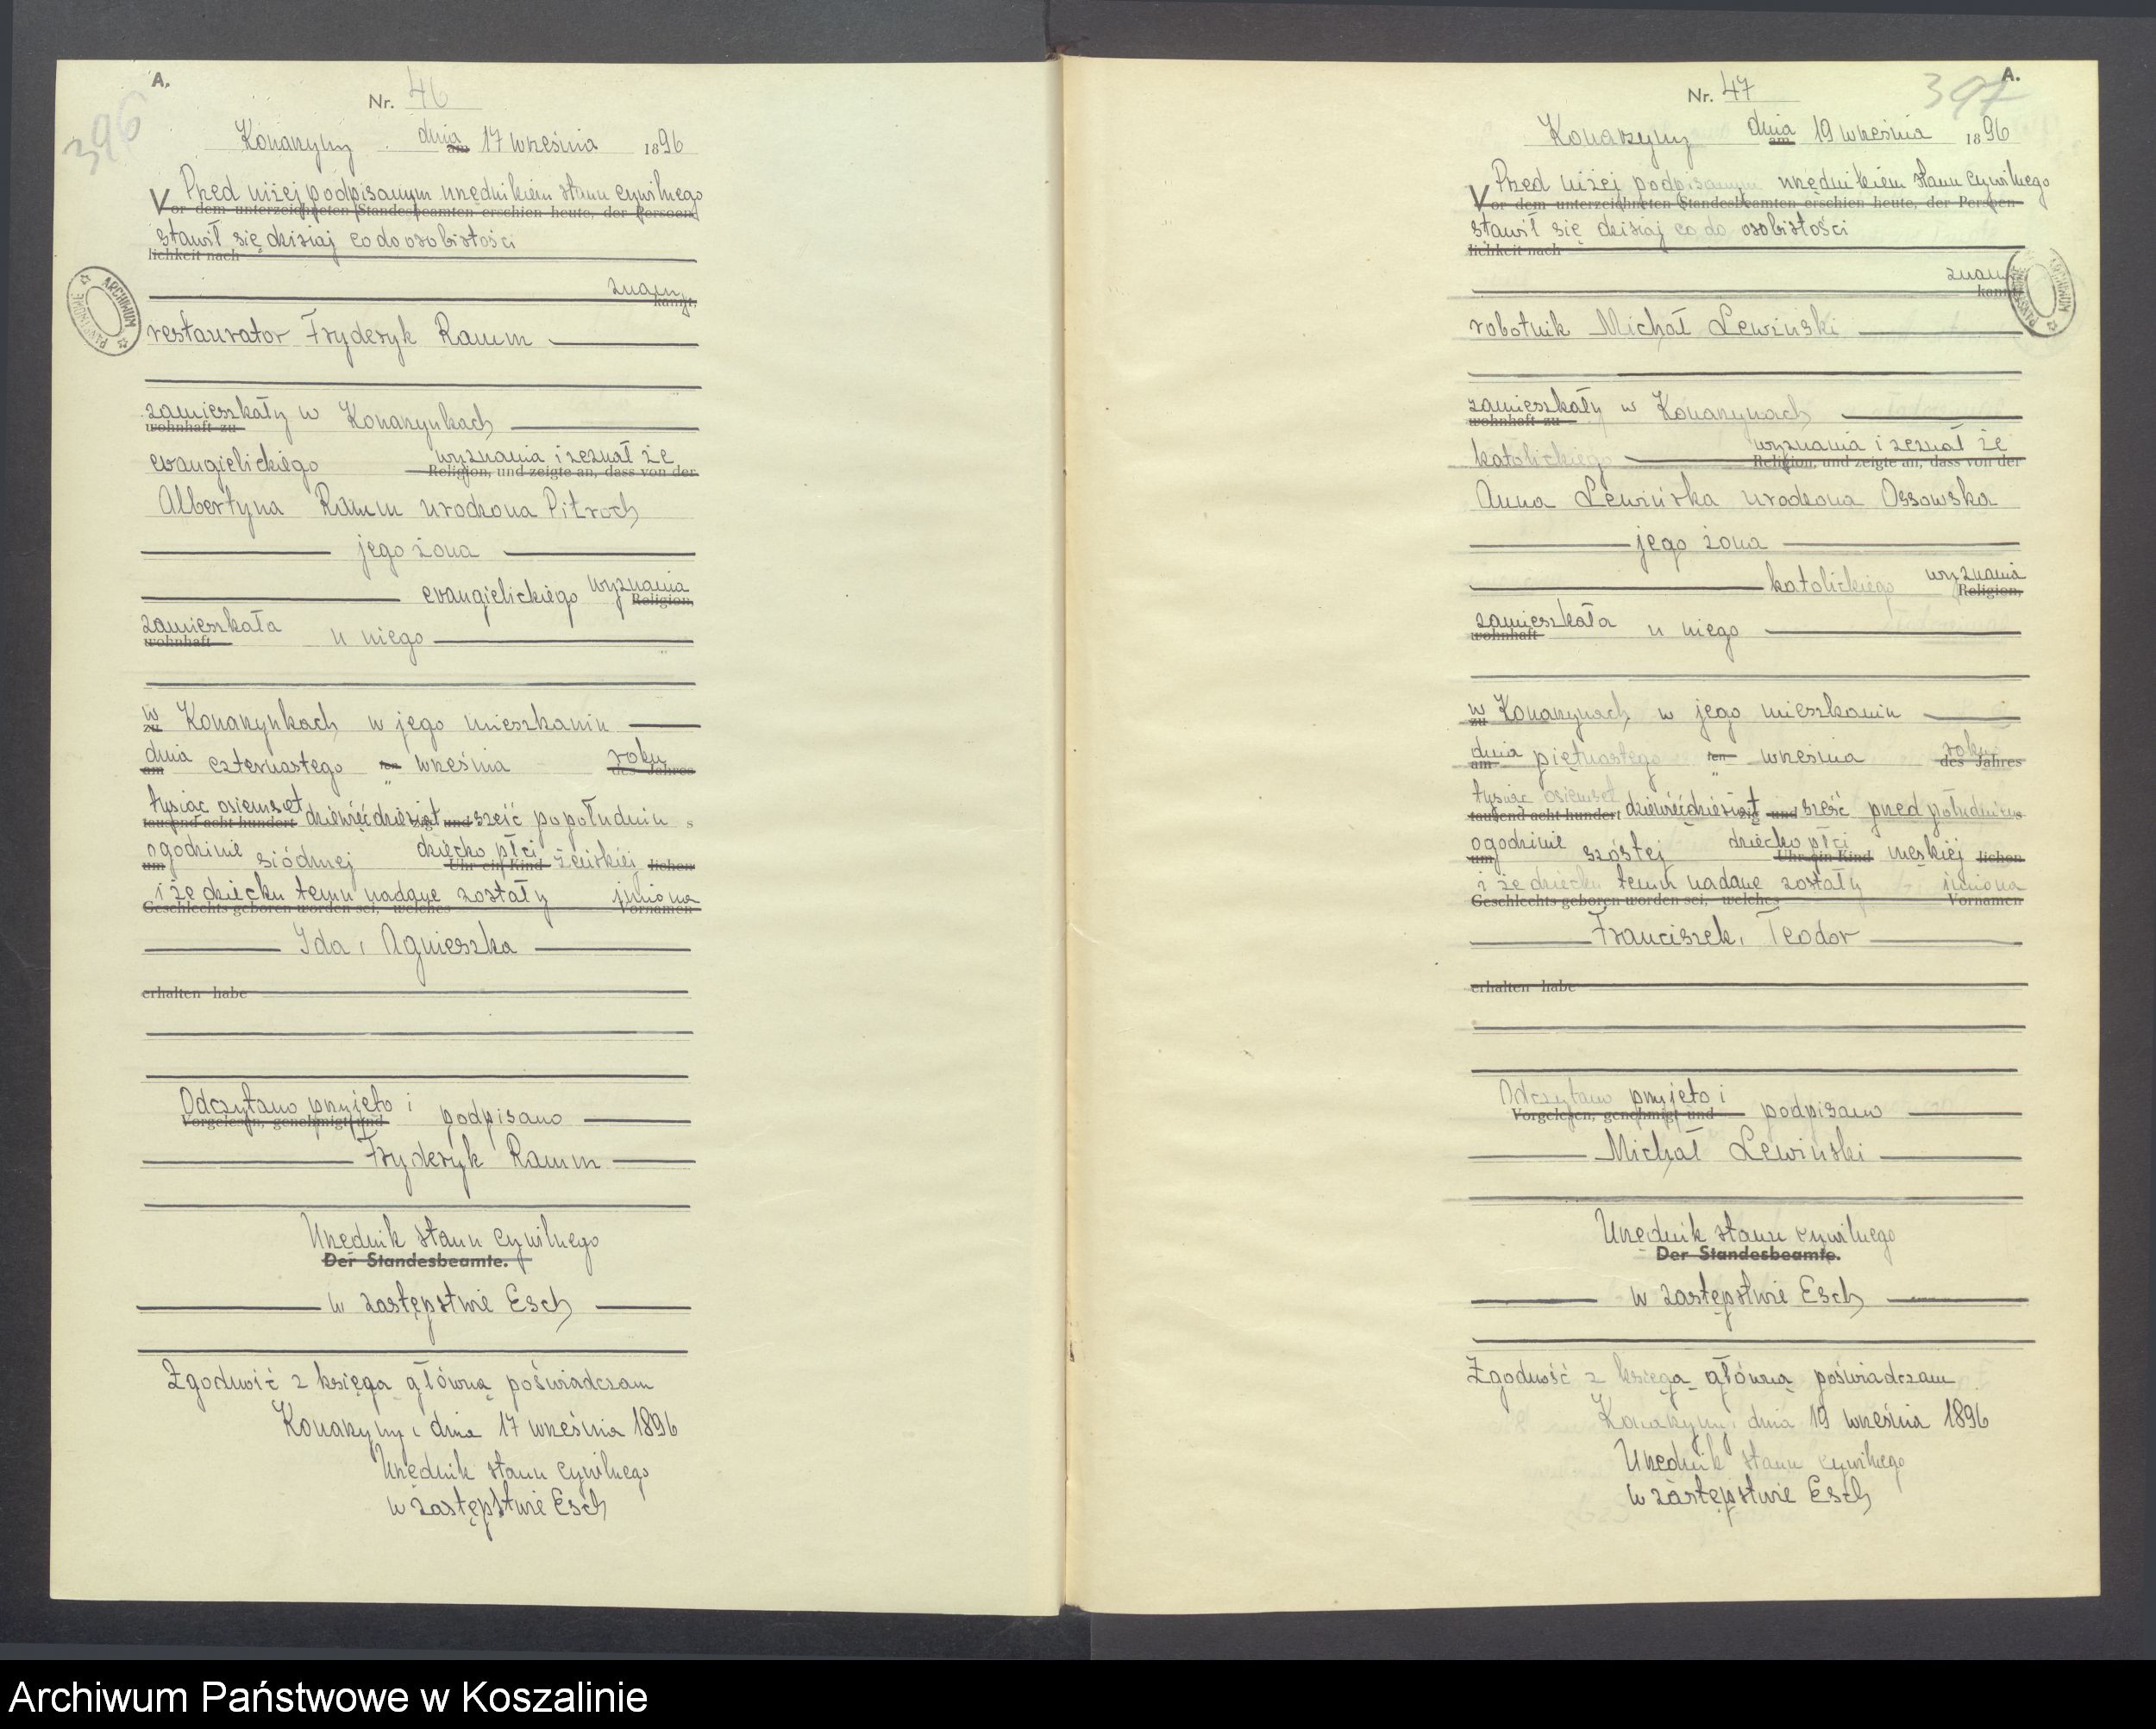 A.
Nr. 46
396
Konarzyny dnia am 17 września 1896
Przed niżej podpisanym urzędnikiem stanu cywilnego
Vor dem unterzeichneten Standesbeamten erschien heute, der Persoen
stawił się dzisiaj co do osobistości
lichkeit nach
znany
kannt,
restaurator Fryderyk Ramm
zamieszkały w Konarzynkach
wohnhaft zu
evangielickiego wyznania i zeznał że
Religion, und zeigte an, dass von der
Albertyna Ramm urodzona Pitroch
jego żona
evangielickiego wyznania
Religion,
zamieszkała u niego
wohnhaft
w Konarzynkach w jego mieszkaniu
zu
dnia czternastego ten września roku
am des Jahres
tysiąc osiemset dziewięćdziesiąt und sześć popołudniu s
tausend acht hundert zig
o godzinie siódmej dziecko płci żeńskiej lichen
um Uhr ein Kind
i że dziecku temu nadane zostały imiona
Geschlechts geboren worden sei, welches Vornamen
Ida, Agnieszka
erhalten habe
Odczytano przyjęto i podpisano
Vorgelesen, genehmigt und
Fryderyk Ramm
Urzędnik stanu cywilnego
Der Standesbeamte.
w zastępstwie Esch
Zgodność z księgą główną poświadczam
Konarzyny, dnia 17 września 1896
Urzędnik stanu cywilnego
w zastępstwie Esch
ARCHIWUM PAŃSTWOWE
A.
Nr. 47
397
Konarzyny dnia am 19 września 1896
Przed niżej podpisanym urzędnikiem stanu cywilnego
Vor dem unterzeichneten Standesbeamten erschien heute, der Persoen
stawił się dzisiaj co do osobistości
lichkeit nach
znany
kannt,
robotnik Michał Lewiński
zamieszkały w Konarzynach
wohnhaft zu
katolickiego wyznania i zeznał że
Religion, und zeigte an, dass von der
Anna Lewińska urodzona Ossowska
jego żona
katolickiego wyznania
Religion,
zamieszkała u niego
wohnhaft
w Konarzynach w jego mieszkaniu
zu
dnia piętnastego ten września roku
am des Jahres
tysiąc osiemset dziewięćdziesiąt und sześć przed południem s
tausend acht hundert zig
o godzinie szóstej dziecko płci męskiej lichen
um Uhr ein Kind
i że dziecku temu nadane zostały imiona
Geschlechts geboren worden sei, welches Vornamen
Franciszek, Teodor
erhalten habe
Odczytano przyjęto i podpisano
Vorgelesen, genehmigt und
Michał Lewiński
Urzędnik stanu cywilnego
Der Standesbeamte.
w zastępstwie Esch
Zgodność z księgą główną poświadczam
Konarzyny, dnia 19 września 1896
Urzędnik stanu cywilnego
w zastępstwie Esch
ARCHIWUM PAŃSTWOWE
Archiwum Państwowe w Koszalinie